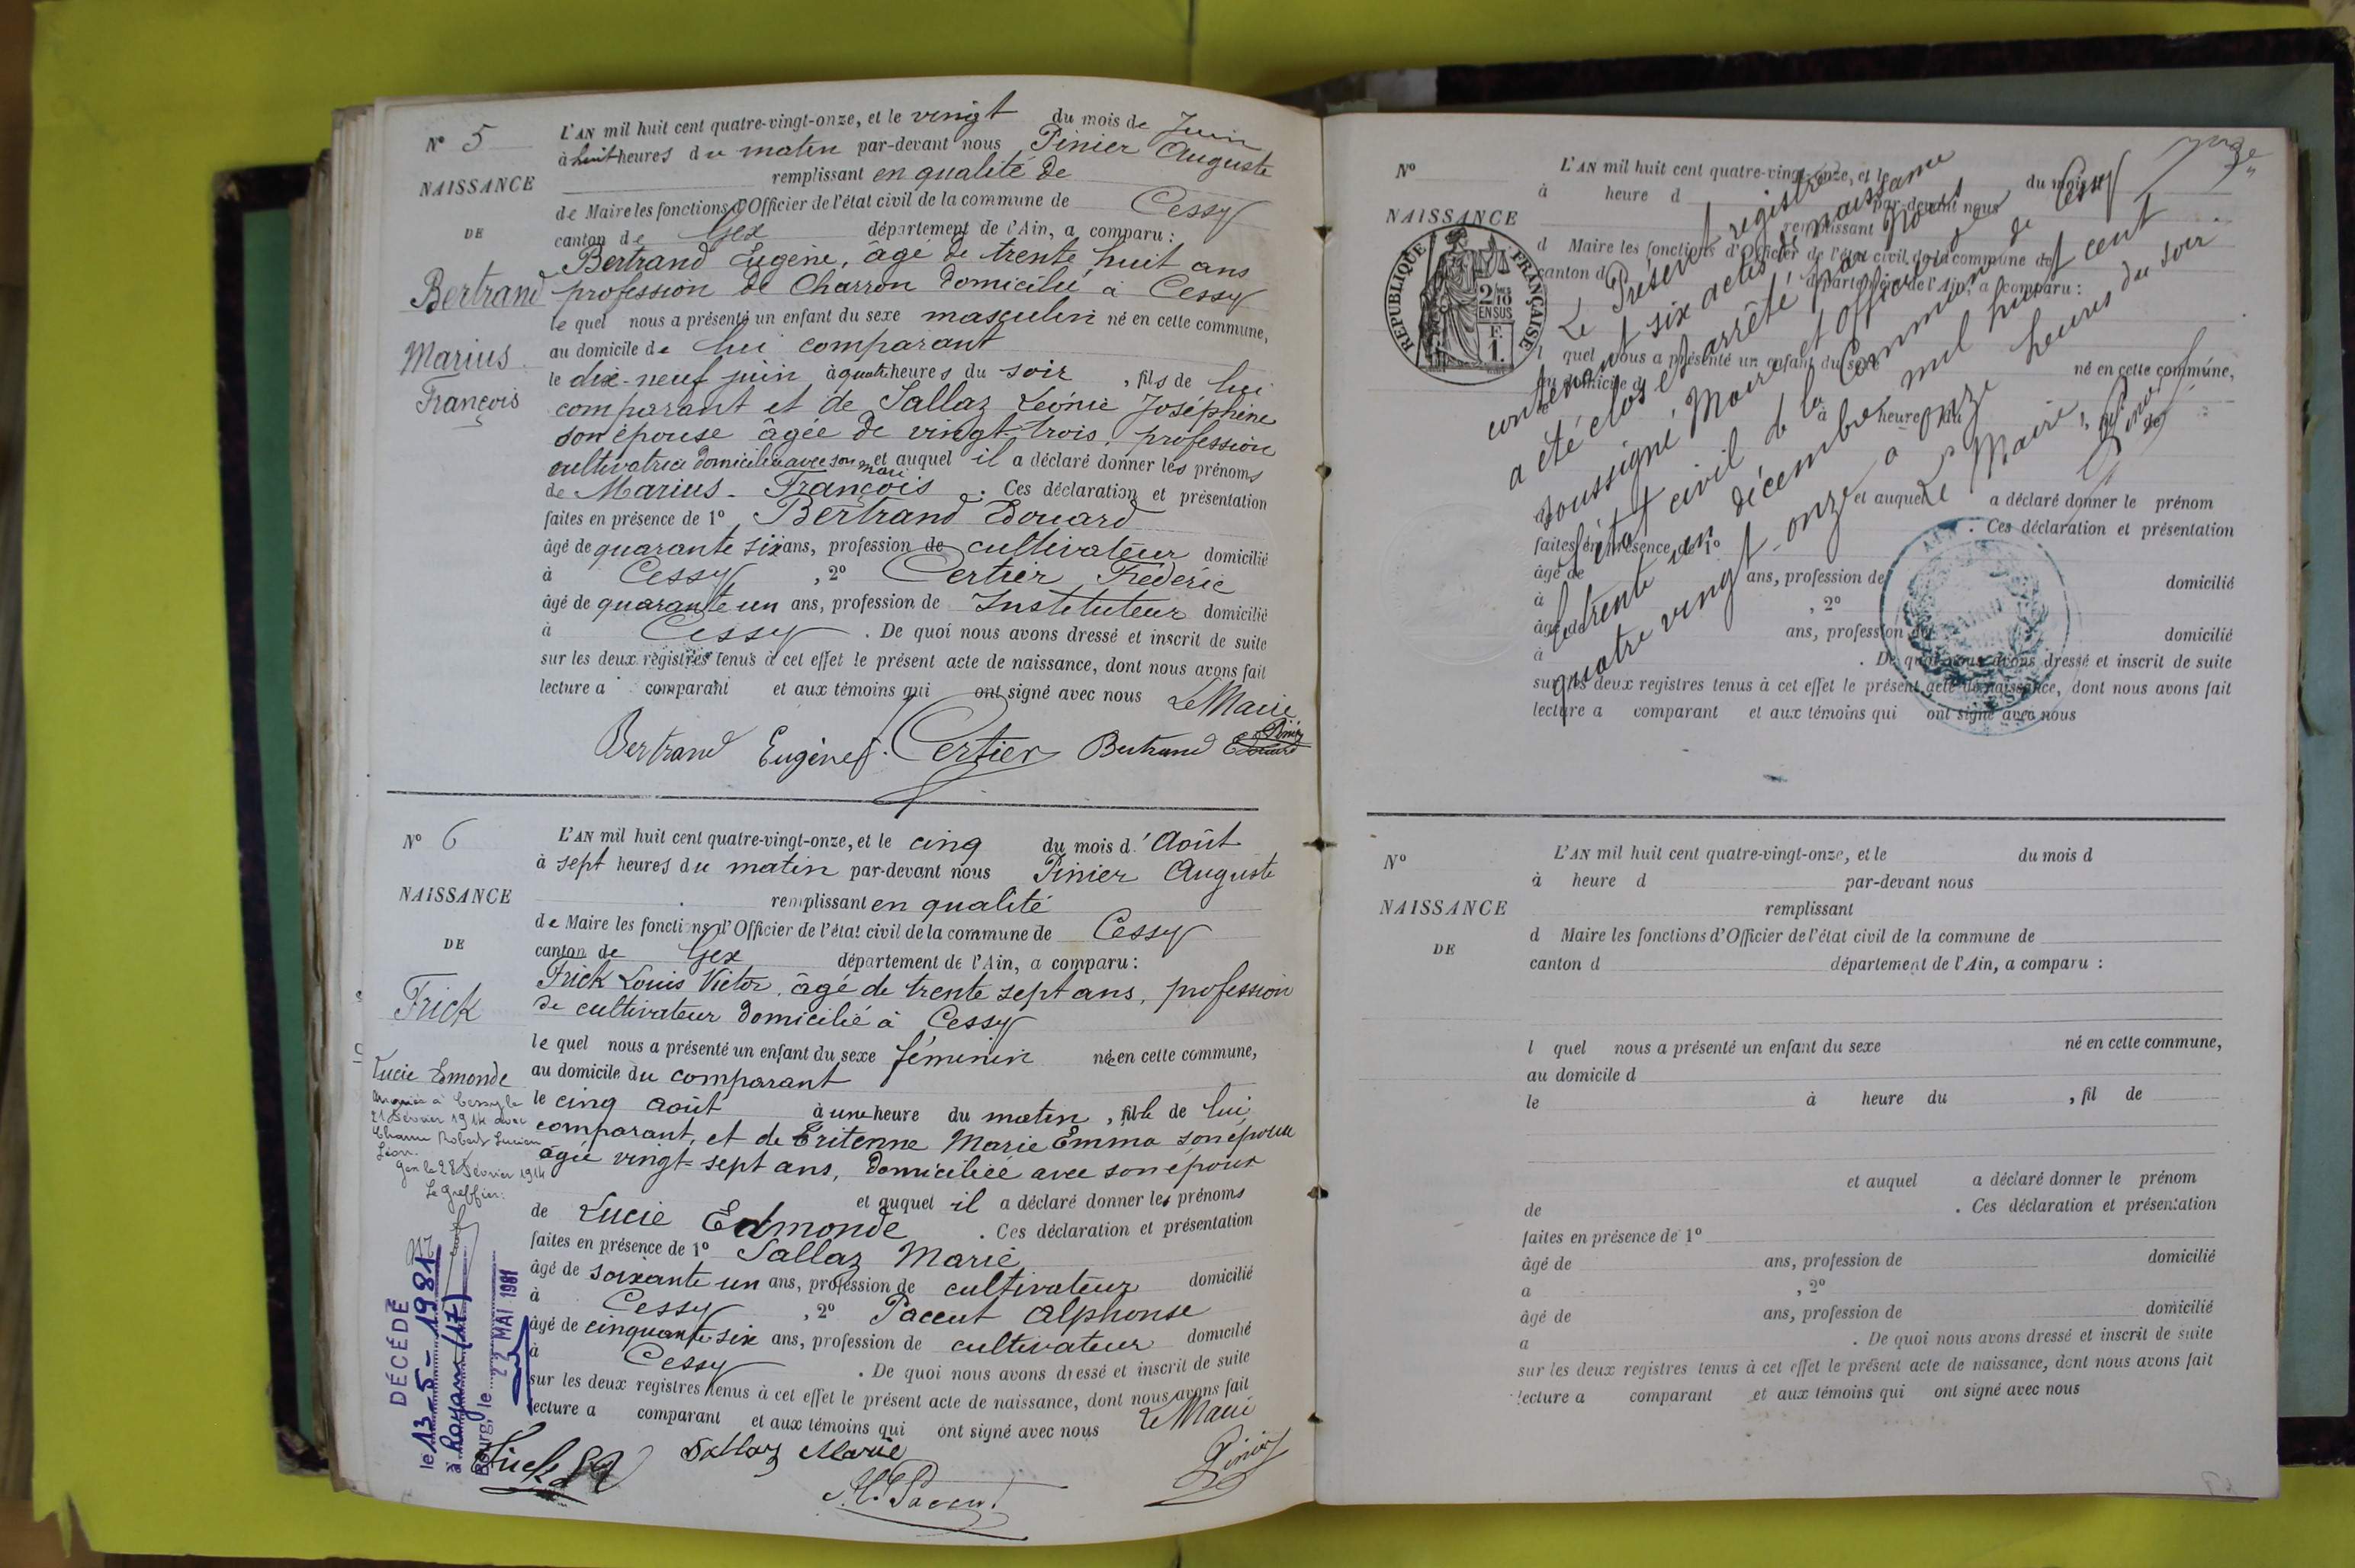 N° 5
NAISSANCE
DE
Bertrand
Marius
François
L'AN mil huit cent quatre-vingt-onze, et le vingt du mois de Juin
à huit heures du matin par-devant nous Pinier Auguste
remplissant en qualité de
de Maire les fonctions d'Officier de l'état civil de la commune de Cessy
canton de Gex département de l'Ain, a comparu :
Bertrand Eugène, âgé de trente huit ans
profession de Charron domicilié à Cessy
le quel nous a présenté un enfant du sexe masculin né en cette commune,
au domicile de lui comparant
le dix-neuf juin à quatre heures du soir, fils de lui
comparant et de Sallaz Léonie Joséphine
son épouse âgée de vingt-trois, profession
cultivatrice domiciliée avec son mari et auquel il a déclaré donner les prénoms
de Marius-François. Ces déclaration et présentation
faites en présence de 1° Bertrand Edouard
âgé de quarante six ans, profession de cultivateur domicilié
à Cessy, 2° Certier Fréderic
âgé de quarante un ans, profession de Instituteur domicilié
à Cessy. De quoi nous avons dressé et inscrit de suite
sur les deux registres tenus à cet effet le présent acte de naissance, dont nous avons fait
lecture a comparant et aux témoins qui ont signé avec nous Le Maire
Pinier
Bertrand Eugène f. Certier Bertrand Edouard
N° 6
NAISSANCE
DE
Frick
Lucie Emonde
Mariée à Cessy le
21 Février 1914 avec
Robert Lucien
Léon.
Gex le 28 Février 1914
Le Greffier:
DÉCÉDÉ
le 13-5-1981
à Royan (17)
Bourg, le 22 MAI 1981
L'AN mil huit cent quatre-vingt-onze, et le cinq du mois d'Août
à sept heures du matin par-devant nous Pinier Auguste
remplissant en qualité
de Maire les fonctions d'Officier de l'état civil de la commune de Cessy
canton de Gex département de l'Ain, a comparu :
Frick Louis Victor, âgé de trente sept ans, profession
de cultivateur domicilié à Cessy
le quel nous a présenté un enfant du sexe féminin née en cette commune,
au domicile du comparant
le cinq Août à une heure du matin, fille de lui
comparant, et de Marie Emma son épouse
âgée vingt-sept ans, domiciliée avec son époux
et auquel il a déclaré donner les prénoms
de Lucie Edmonde. Ces déclaration et présentation
faites en présence de 1° Sallaz Marie
âgé de soixante un ans, profession de cultivateur domicilié
à Cessy, 2° Paccut Alphonse
âgé de cinquante-six ans, profession de cultivateur domicilié
à Cessy. De quoi nous avons dressé et inscrit de suite
sur les deux registres tenus à cet effet le présent acte de naissance, dont nous avons fait
lecture a comparant et aux témoins qui ont signé avec nous Le Maire
Frick Sallaz Marie Pinier
N°
NAISSANCE
RÉPUBLIQUE FRANÇAISE
2/10 EN SUS
F. 1.
L'AN mil huit cent quatre-vingt-onze, et le du mois d
à heure d par-devant nous
remplissant
d Maire les fonctions d'Officier de l'état civil de la commune de
canton d département de l'Ain, a comparu :
l quel nous a présenté un enfant du sexe né en cette commune,
au domicile d
à heure du
et auquel a déclaré donner le prénom
. Ces déclaration et présentation
faites en présence de 1°
âgé de ans, profession de domicilié
à , 2°
âgé de ans, profession de domicilié
à . De quoi nous avons dressé et inscrit de suite
sur les deux registres tenus à cet effet le présent acte de naissance, dont nous avons fait
lecture a comparant et aux témoins qui ont signé avec nous
Le Présent registre
contenant six actes de naissance
a été clos et arrêté par Nous
soussigné Maire et Officier de
l'état civil de la Commune de Cessy
le trente un décembre mil huit cent
quatre vingt-onze à onze heures du soir
Le Maire,
Pinier
N°
NAISSANCE
DE
L'AN mil huit cent quatre-vingt-onze, et le du mois d
à heure d par-devant nous
remplissant
d Maire les fonctions d'Officier de l'état civil de la commune de
canton d département de l'Ain, a comparu :
l quel nous a présenté un enfant du sexe né en cette commune,
au domicile d
le à heure du , fil de
et auquel a déclaré donner le prénom
de . Ces déclaration et présentation
faites en présence de 1°
âgé de ans, profession de domicilié
a , 2°
âgé de ans, profession de domicilié
a . De quoi nous avons dressé et inscrit de suite
sur les deux registres tenus à cet effet le présent acte de naissance, dont nous avons fait
lecture a comparant et aux témoins qui ont signé avec nous